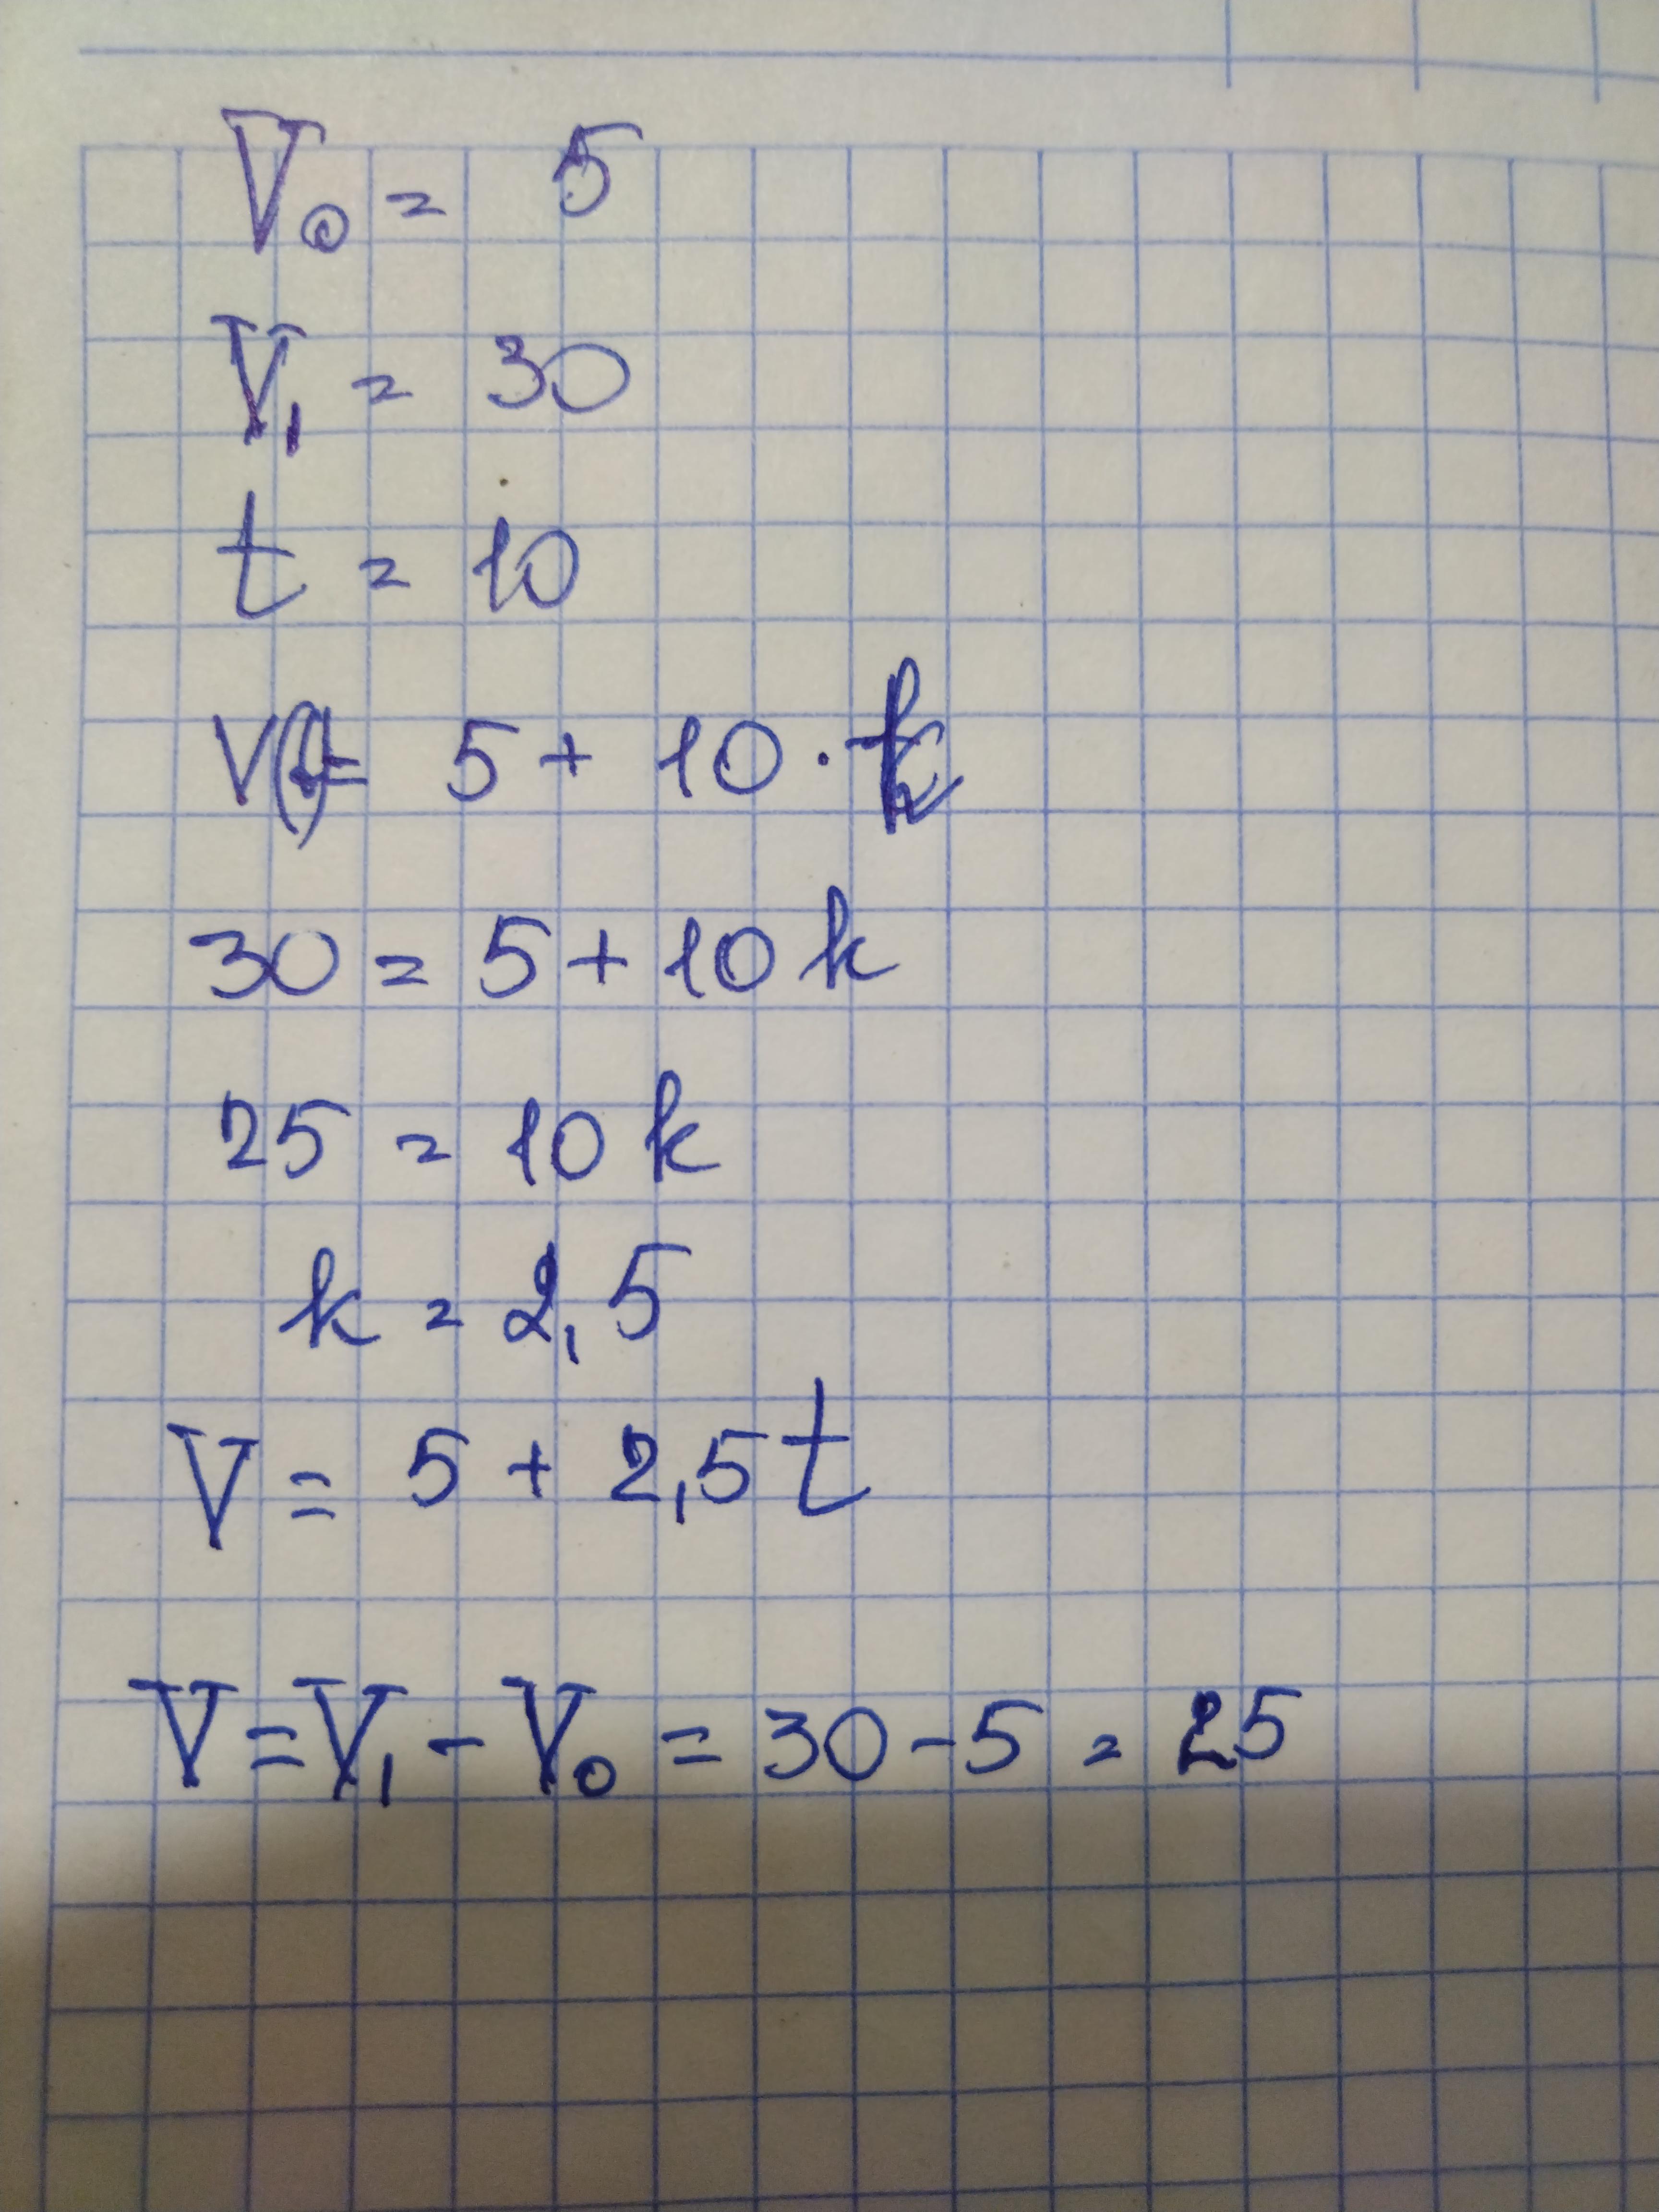 V₀ = 5
V₁ = 30
t = 10
V(t)= 5 + 10 · k
30 = 5 + 10 k
25 = 10 k
k = 2,5
V = 5 + 2,5 t
V = V₁ - V₀ = 30 - 5 = 25